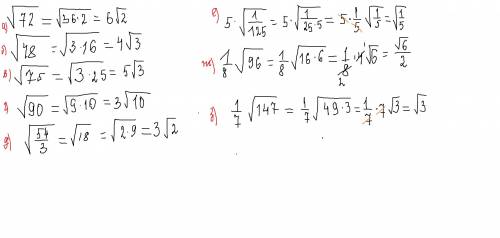 а) √72 = √36·2 = 6√2
б) √48 = √3·16 = 4√3
в) √75 = √3·25 = 5√3
г) √90 = √9·10 = 3√10
д) √54/3 = √18 = √2·9 = 3√2
е) 5·√1/125 = 5·√1/25·5 = 5·1/5√1/5 = √1/5
ж) 1/8√96 = 1/8√16·6 = 1/8·4√6 = √6/2
2
з) 1/7√147 = 1/7√49·3 = 1/7·7√3 = √3